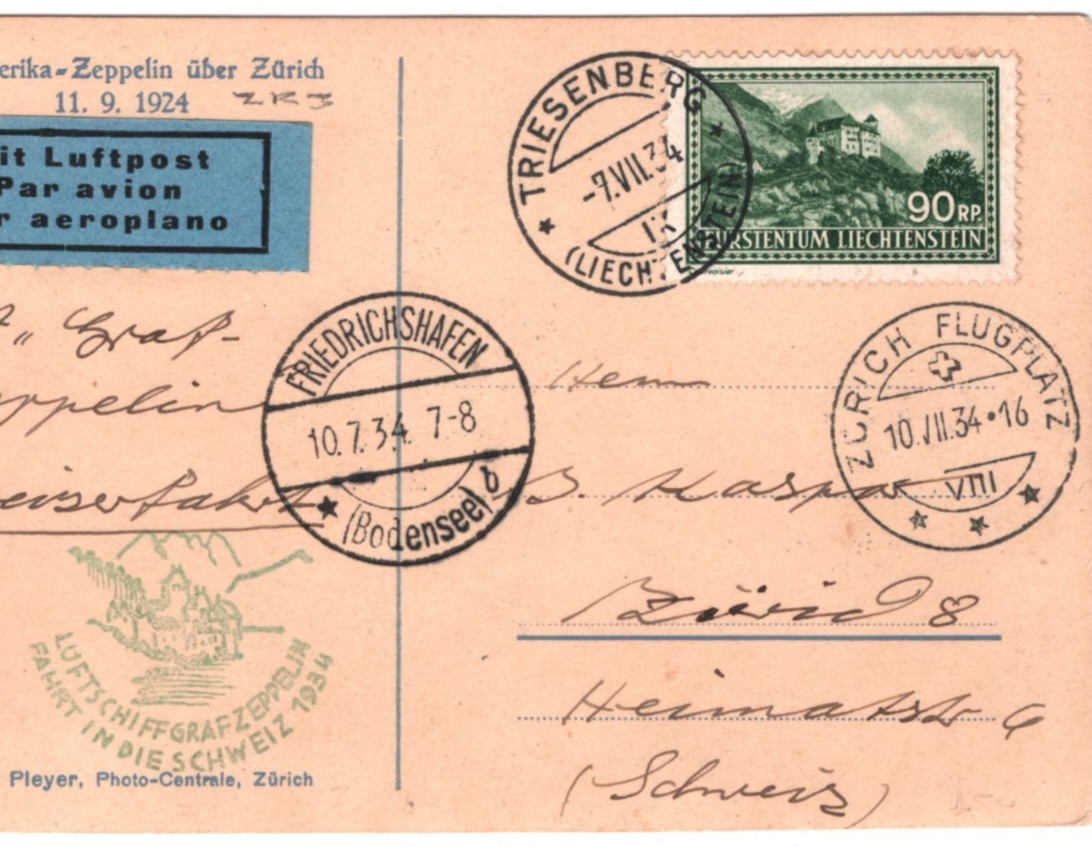 erika-Zeppelin über Zürich
11. 9. 1924 ZR3
it Luftpost
Par avion
r aeroplano
TRIESENBERG
-7.VII.34
IX
(LIECHTENSTEIN)
90 RP.
FÜRSTENTUM LIECHTENSTEIN
" Graf-
eppelin
eizerfahrt
FRIEDRICHSHAFEN
10.7.34 7-8
(Bodensee) b
ZÜRICH FLUGPLATZ
10.VII.34•16
VIII
Herrn
B. Kaspar
Zürich 8
Heimatstr 6
(Schweiz)
LUFTSCHIFF GRAF ZEPPELIN
FAHRT IN DIE SCHWEIZ 1934
Pleyer, Photo-Centrale, Zürich